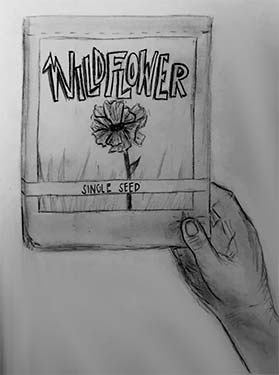 WILDFLOWER
SINGLE SEED